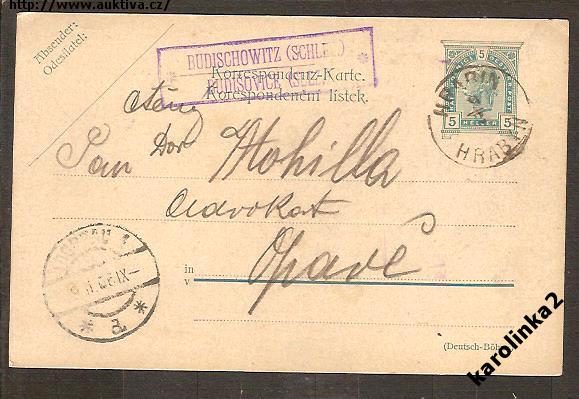 http://www.auktiva.cz/
Absender:
Odesílatel:
BUDISCHOWITZ (SCHL
BUDIŠOVICE
Korrespondenz-Karte.
Korespondenční lístek.
5
5 HELLER 5
HRABIN
HRABYN
Pan Dor Stohilla
Advokat
in
v
Opavě
(Deutsch-Böh
karolinka2